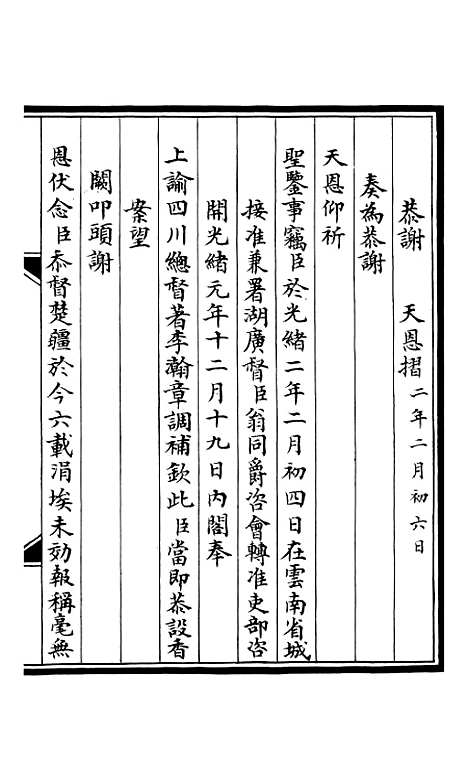 恭謝 天恩摺二年二月初六日
奏為恭謝
天恩仰祈
聖鑒事竊臣於光緒二年二月初四日在雲南省城
接准兼署湖廣督臣翁同爵咨會轉准吏部咨
開光緒元年十二月十九日內閣奉
上諭四川總督著李瀚章調補欽此臣當即恭設香
案望
闕叩頭謝
恩伏念臣忝督楚疆於今六載涓埃未効報稱毫無